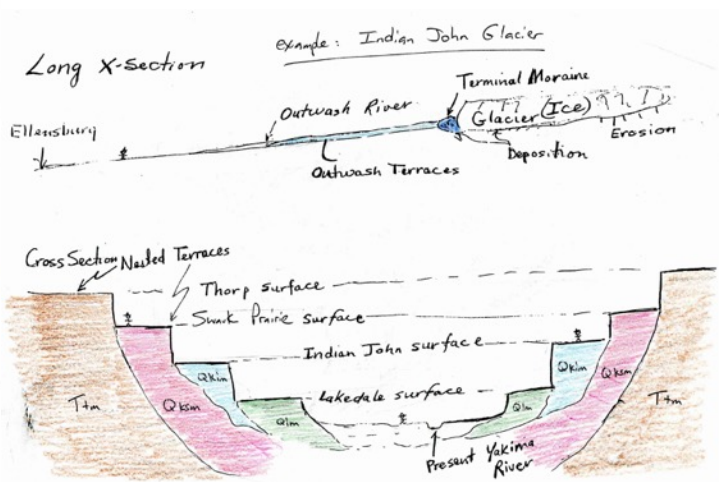 example: Indian John Glacier
Long X-Section
Terminal Moraine
Outwash River
Glacier (Ice)
Ellensburg
Erosion
Deposition
Outwash Terraces
Cross Section Nested Terraces
Thorp surface
Swuk Prairie surface
Indian John surface
Lakedale surface
Qkim
Qkim
Qksm
Ttm
Qksm
Qlm
Qlm
Ttm
Present Yakima
River